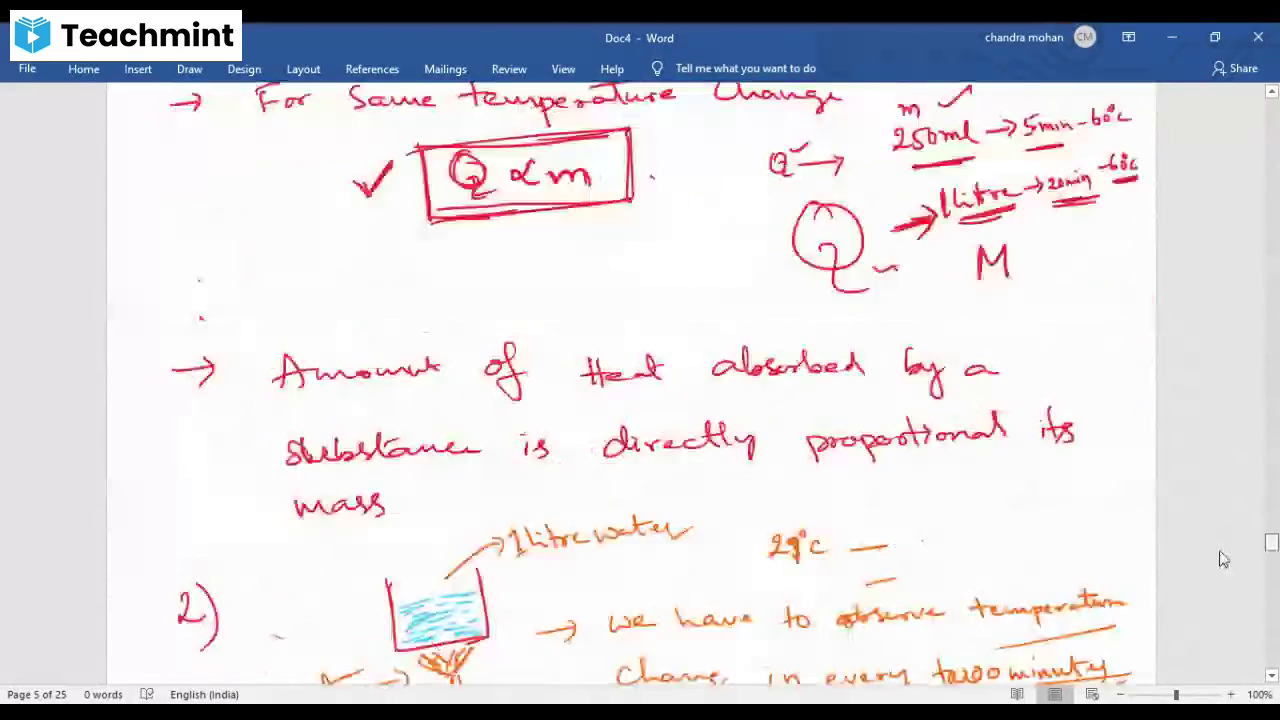 Teachmint
Doc4 - Word
chandra mohan
CM
File Home Insert Draw Design Layout References Mailings Review View Help Tell me what you want to do
Share
→ For Same temperature Change
Q ∝ m
m
250ml → 5min - 60°c
Q →
1 litre → 20min - 60°c
Q
M
→ Amount of Heat absorbed by a
substance is directly proportional its
mass
2)
1 litre water
29°c —
→ we have to observe temperature
in every two minuty
Page 5 of 25 0 words English (India)
100%